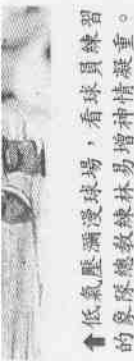 ⬆低氣壓瀰漫球場，看球員練習
的象隊總教練林易增神情凝重。